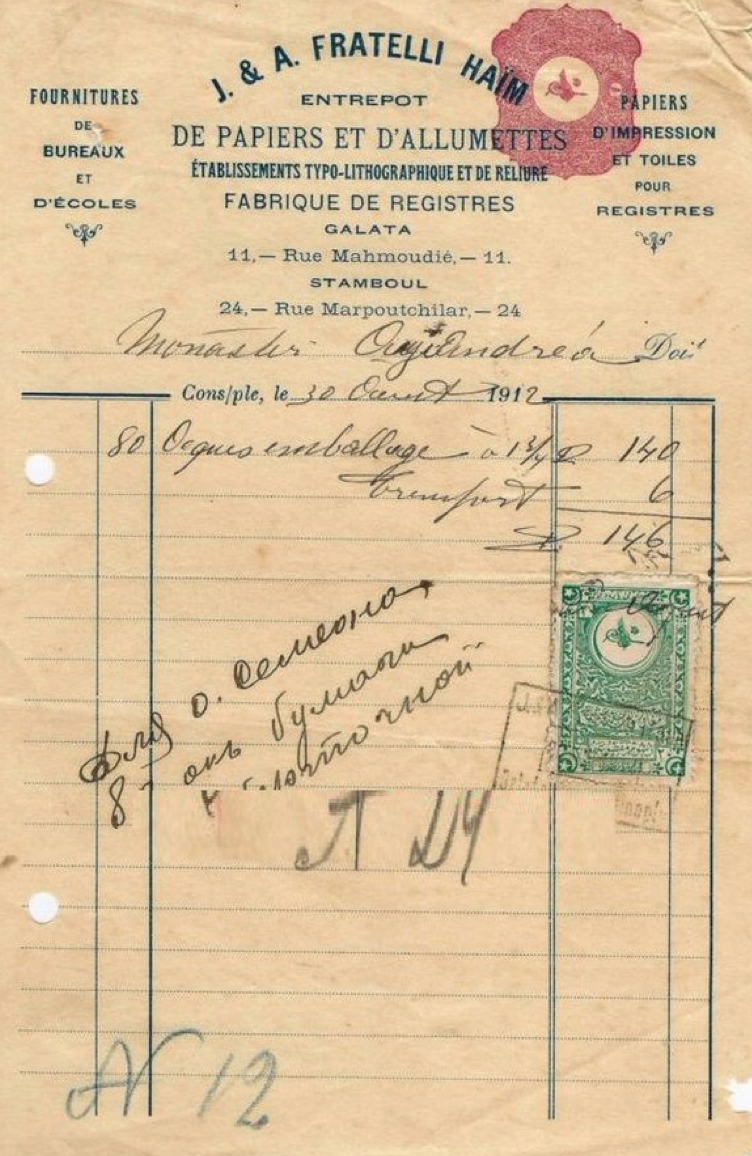 J. & A. FRATELLI HAÏM
ENTREPOT
DE PAPIERS ET D'ALLUMETTES
ÉTABLISSEMENTS TYPO-LITHOGRAPHIQUE ET DE RELIURE
FABRIQUE DE REGISTRES
GALATA
11,— Rue Mahmoudié,— 11.
STAMBOUL
24,— Rue Marpoutchilar,— 24
FOURNITURES
DE
BUREAUX
ET
D'ÉCOLES
PAPIERS
D'IMPRESSION
ET TOILES
POUR
REGISTRES
Monastir Andréa Doit
Cons/ple, le 30 Aout 1912
80 Oques emballage à 1 3/4 140
Transport 6
146
Для о. Семеона,
8 окъ бумаги
№ 12